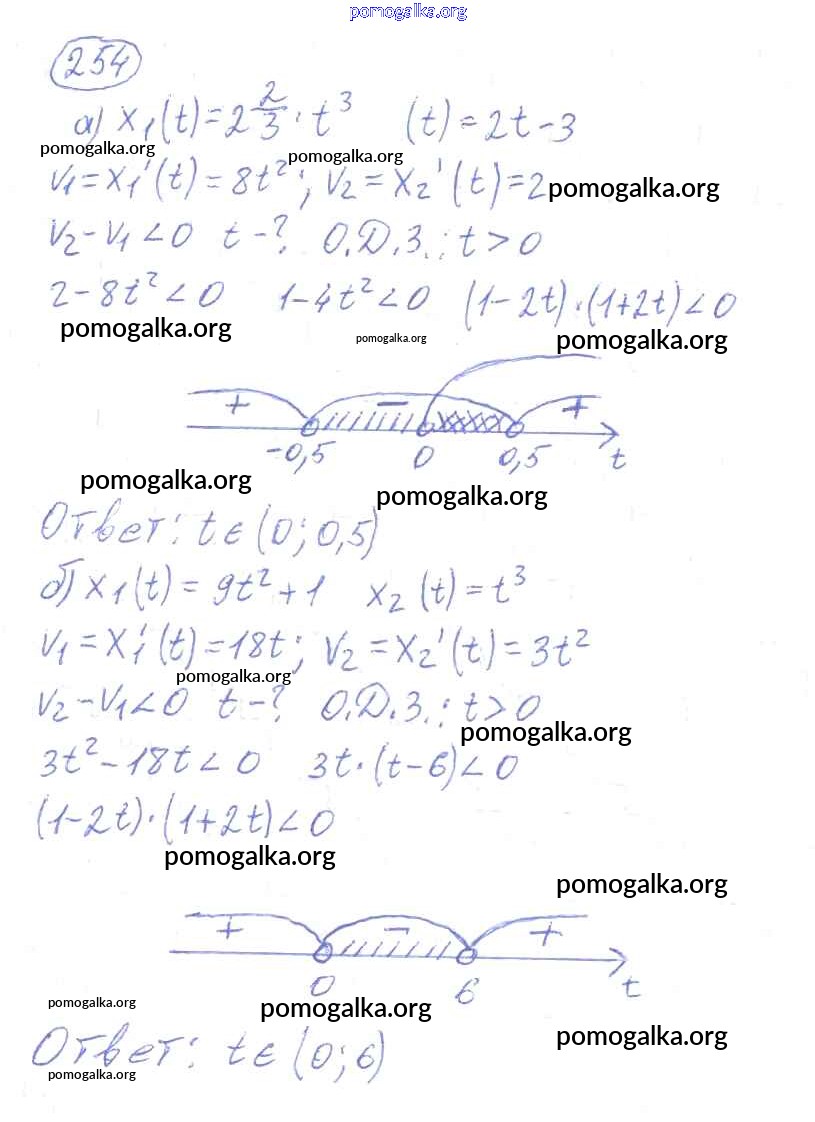 pomogalka.org
254
а) x₁(t) = 2 2/3 · t³ (t) = 2t - 3
pomogalka.org pomogalka.org
v₁ = x₁'(t) = 8t²; v₂ = x₂'(t) = 2 pomogalka.org
v₂ - v₁ < 0 t - ? О.Д.З.: t > 0
2 - 8t² < 0 1 - 4t² < 0 (1 - 2t) · (1 + 2t) < 0
pomogalka.org pomogalka.org pomogalka.org
+ − +
-0,5 0 0,5 t
pomogalka.org pomogalka.org
Ответ: t ∈ (0; 0,5)
б) x₁(t) = 9t² + 1 x₂(t) = t³
v₁ = x₁'(t) = 18t; v₂ = x₂'(t) = 3t²
pomogalka.org
v₂ - v₁ < 0 t - ? О.Д.З.: t > 0
pomogalka.org
3t² - 18t < 0 3t · (t - 6) < 0
(1 - 2t) · (1 + 2t) < 0
pomogalka.org
pomogalka.org
+ − +
0 6 t
pomogalka.org pomogalka.org pomogalka.org
Ответ: t ∈ (0; 6)
pomogalka.org